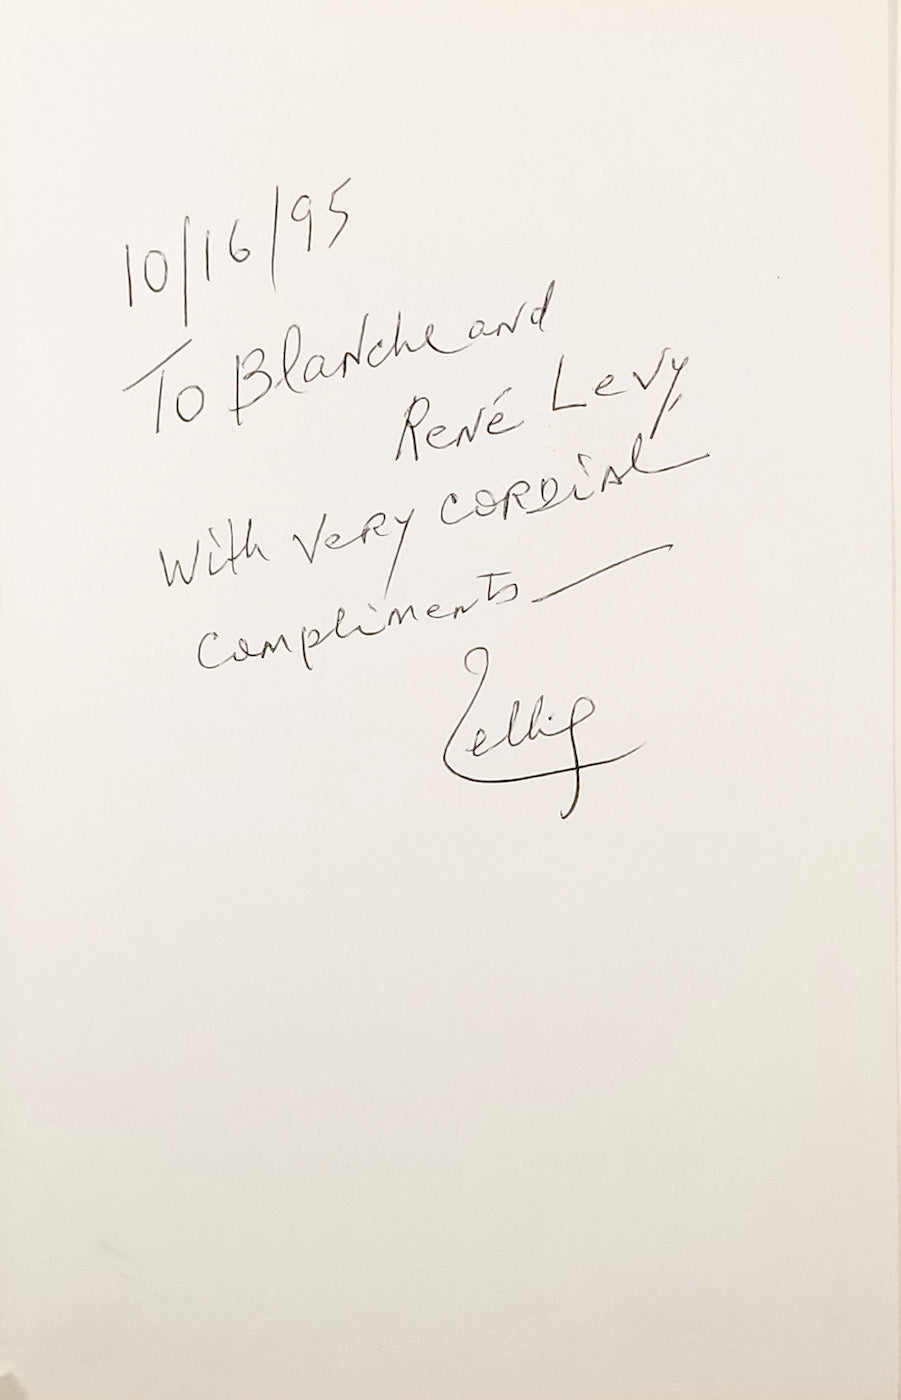 10/16/95
To Blanche and
René Levy,
With very cordial
compliments —